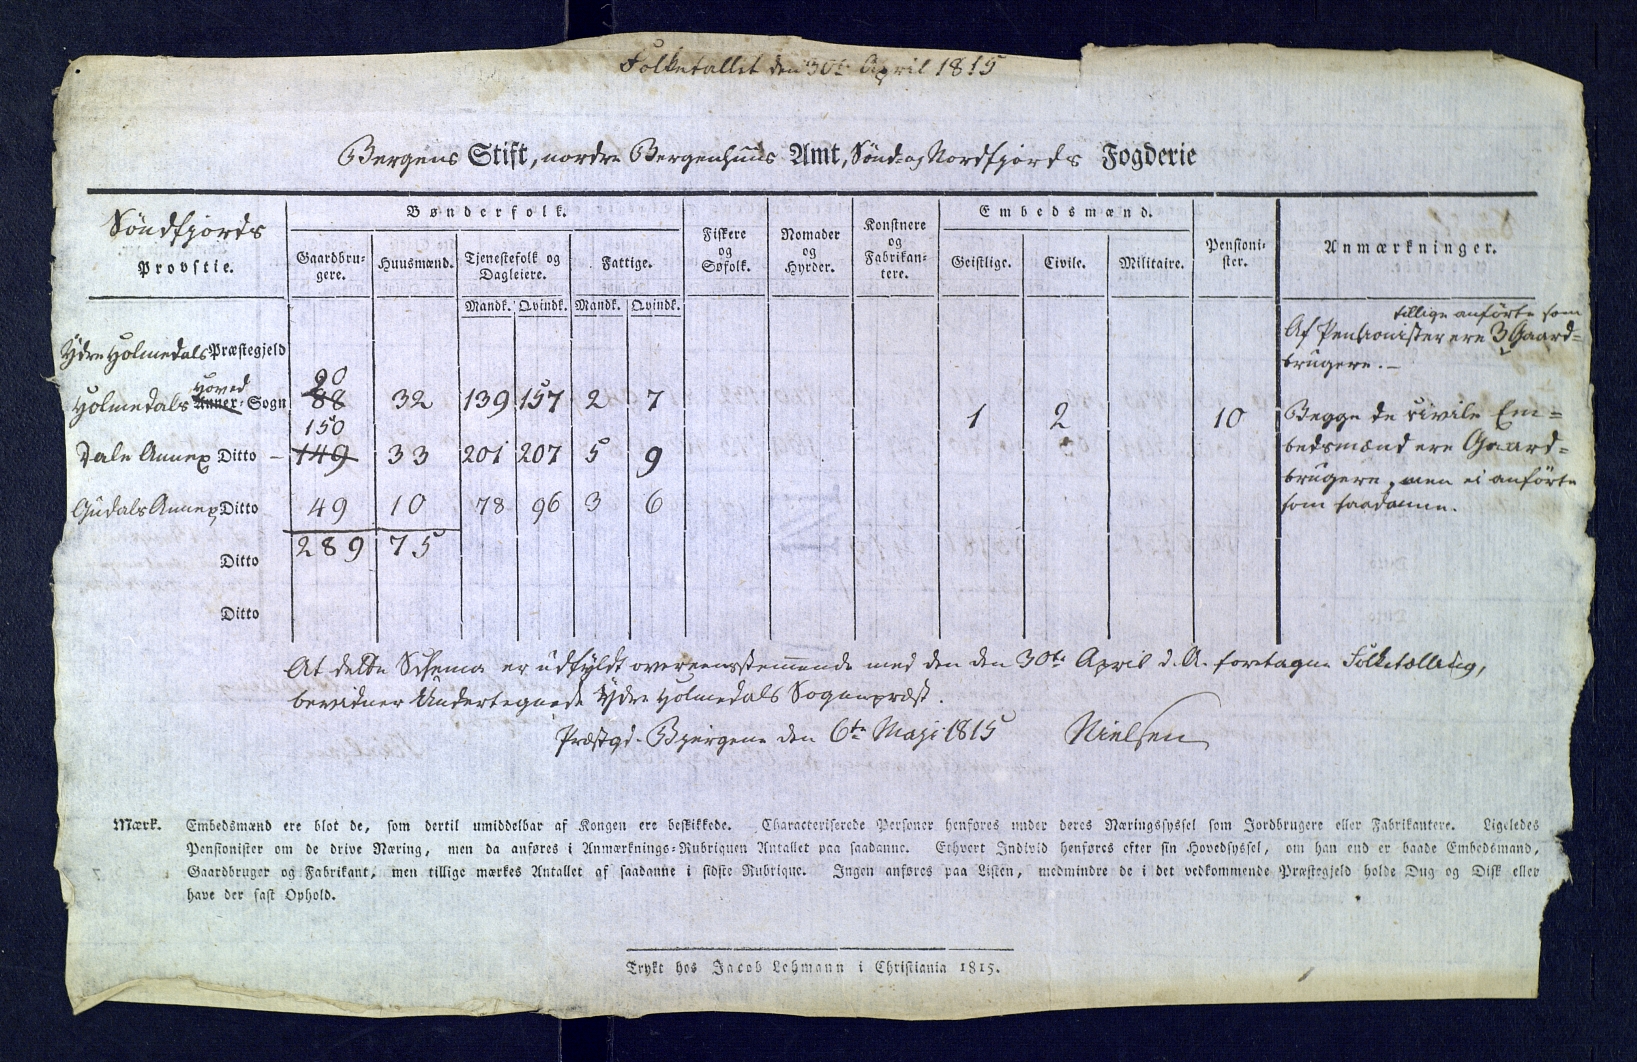 Folketallet den 30te April 1815
Bergens Stift, nordre Bergenhuus Amt, Sönd- og Nordfjords Fogderie
Söndfjords
Provstie.
Bønderfolk.
Gaardbru-
gere.
Huusmænd.
Tjenestefolk og
Dagleiere.
Fattige.
Mandk. Qvindk. Mandk. Qvindk.
Fiskere
og
Søfolk.
Nomader
og
Hyrder.
Konstnere
og
Fabrikan-
tere.
Embedsmænd.
Geistlige. Civile. Militaire.
Pensioni-
ster.
Anmærkninger.
Ydre Holmedals Præstegjeld
90
Hoved
Holmedals Annex-Sogn 88 32 139 157 2 7
1 2 10
150
Dale Annex Ditto – 149 33 201 207 5 9
Gudals Annex Ditto 49 10 78 96 3 6
289 75
Ditto
Ditto
tillige anförte som
Af Pensionister ere 3 Gaard=
brugere. –
Begge de civile Em=
bedsmænd ere Gaard=
brugere, men ei anförte
som saadanne.
At dette Schema er udfyldt overeensstemmende med den den 30te April d. A. foretagne Folketælling,
bevidner Undertegnede Ydre Holmedals Sognepræst.
Præstgd. Bjergene den 6te Maji 1815 Nielsen
Mærk. Embedsmænd ere blot de, som dertil umiddelbar af Kongen ere beskikkede. Characteriserede Personer henføres under deres Næringssyssel som Jordbrugere eller Fabrikantere. Ligeledes
Pensionister om de drive Næring, men da anføres i Anmærknings-Rubriquen Antallet paa saadanne. Ethvert Individ henføres efter sin Hovedsyssel, om han end er baade Embedsmand,
Gaardbruger og Fabrikant, men tillige mærkes Antallet af saadanne i sidste Rubrique. Ingen anføres paa Listen, medmindre de i det vedkommende Præstegjeld holde Dug og Disk eller
have der fast Ophold.
Trykt hos Jacob Lehmann i Christiania 1815.